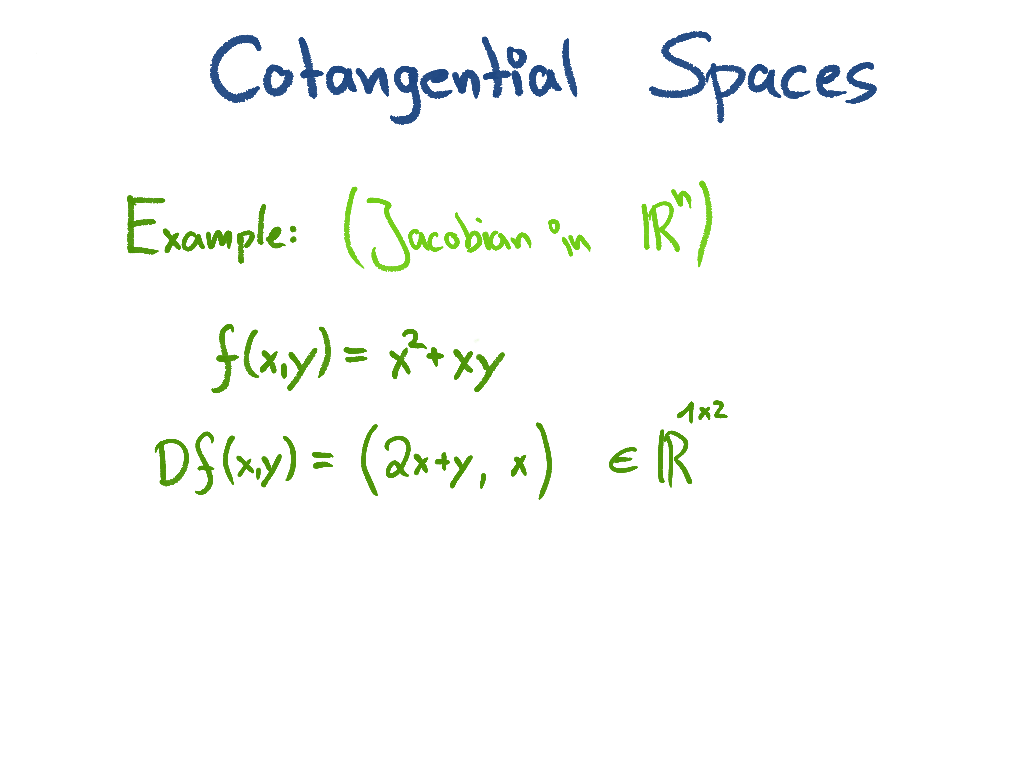 Cotangential Spaces
Example: (Jacobian in ℝⁿ)
f(x,y) = x² + xy
Df(x,y) = (2x+y, x) ∈ ℝ¹ˣ²